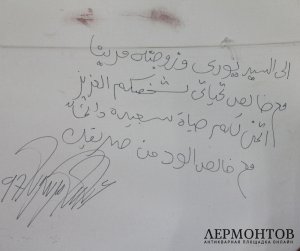 الى السيد يوري وزوجته مرينا
مع خالص تحياتي لشخصكم العزيز
اتمنى لكم حياة سعيدة دائما
مع خالص الود من صديقك
97
ЛЕРМОНТОВ
АНТИКВАРНАЯ ПЛОЩАДКА ОНЛАЙН